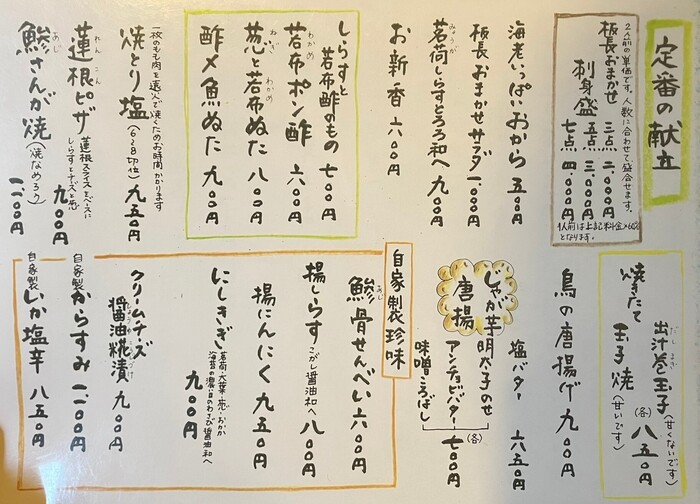 定番の献立
2人前の単価です。人数に合わせて盛合せます。
板長おまかせ
刺身盛
三点 二、〇〇〇円
五点 三、〇〇〇円
七点 四、〇〇〇円
1人前は上記料金×60%
となります。
海老いっぱいおから 五〇〇円
板長おまかせサラダ 一、〇〇〇円
茗荷しらすとろろ和へ 九〇〇円
みょうが
お新香 六〇〇円
しらすと
若布酢のもの 七〇〇円
わかめ
若布ポン酢 六〇〇円
ねぎ
葱と若布ぬた 八〇〇円
酢〆魚ぬた 九〇〇円
一枚のもも肉を遠火で焼くためお時間かかります
焼とり塩(6~8切位) 九五〇円
れんこん
蓮根ピザ
蓮根スライスをベースに
しらすとチーズと葱
九〇〇円
あじ
鯵さんが焼(焼なめろう) 一、一〇〇円
焼きたて
だしまき
出汁巻玉子(甘くないです)
玉子焼(甘いです)
(各)八五〇円
鳥の唐揚げ 九〇〇円
じゃが芋
唐揚
塩バター 六五〇円
明太子のせ
アンチョビバター
味噌ころばし
(各)七〇〇円
自家製珍味
あじ
鯵骨せんべい 六〇〇円
揚しらす こがし醤油和へ 八〇〇円
揚にんにく 九五〇円
にしきぎ
茗荷・大葉・葱・おかか
海苔の濃い目のわさび醤油和へ
九〇〇円
クリームチーズ
醤油糀漬 九〇〇円
自家製からすみ 一、一〇〇円
自家製いか塩辛 八五〇円